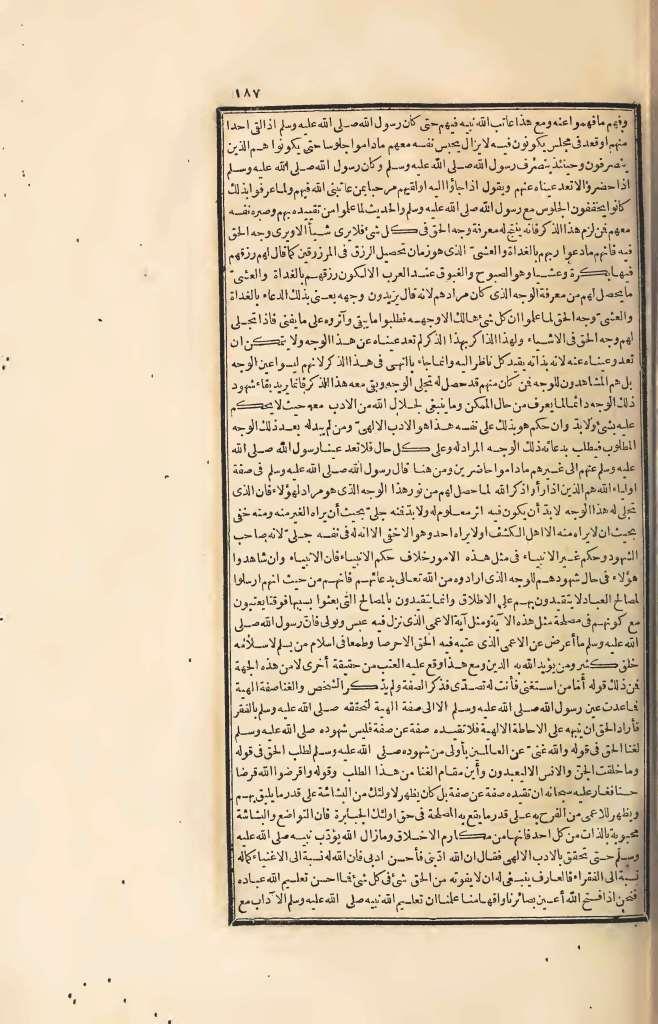 ١٨٧
وفهم ما فهموا عنه ومع هذا عاتب الله نبيه فيهم حتى كان رسول الله صلى الله عليه وسلم اذا لقى احدا
منهم او قعد فى مجلس يكونون فيه لا يزال يحبس نفسه معهم ماداموا جلوسا حتى يكونوا هم الذين
ينصرفون وحينئذ ينصرف رسول الله صلى الله عليه وسلم وكان رسول الله صلى الله عليه وسلم
اذا حضروا لا تعد عيناه عنهم ويقول اذا جاؤا اليه او لقيهم مرحبا بمن عاتبنى الله فيهم ولما عرفوا بذلك
كانوا يخففون الجلوس مع رسول الله صلى الله عليه وسلم والحديث لما علموا من تقييده بهم وصبره نفسه
معهم فن لزم هذا الذكر فانه ينتج له معرفة وجه الحق فى كل شئ فلا يرى شيأ الا ويرى وجه الحق
فيه فانهم ما دعوا ربهم بالغداة والعشىّ الذى هو زمان تحصيل الرزق فى المرزوقين كما قال لهم رزقهم
فيها بكرة وعشيا وهو الصبوح والغبوق عند العرب الا لكون رزقهم بالغداة والعشىّ
ما يحصل لهم من معرفة الوجه الذى كان مرادهم لانه قال يريدون وجهه يعنى بذلك الدعاء بالغداة
والعشىّ وجه الحق لما علموا ان كل شئ هالك الا وجهه فطلبوا ما يبقى وآثروه على ما يفنى فاذا تجلى
لهم وجه الحق فى الاشياء ولهذا الذاكر بهذا الذكر لم تعد عيناه عن هذا الوجه ولا يتمكن ان
تعدو عيناه عنه لانه بذاته يقيد كل ناظر اليه وانما جاء بالنهى فى هذا الذكر لانهم ليسوا عين الوجه
بل هم المشاهدون للوجه فن كان منهم قد حصل له تجلى الوجه وبقى معه هذا الذكر فانما يريد بقاء شهود
ذلك الوجه دائما لما يعرف من حال الممكن وما ينبغى لجلال الله من الادب معه حيث لا يحكم
عليه بشئ ولا بدّ وان حكم هو بذلك على نفسه هذا هو الادب الالهىّ ومن لم يبد له بعد ذلك الوجه
المطلوب فيطلب بدعائه ذلك الوجه المراد له وعلى كل حال فلا تعد عينا رسول الله صلى الله
عليه وسلم عنهم الى غيرهم ماداموا حاضرين ومن هنا قال رسول الله صلى الله عليه وسلم فى صفة
اولياء الله هم الذين اذا رأوا ذكر الله لما حصل لهم من نور هذا الوجه الذى هو مراد لهؤلاء فان الذى
تجلى له هذا الوجه لا بدّ أن يكون فيه اثر معلوم له ولا بدّ فنه جلىّ بحيث أن يراه الغير منه ومنه خفى
بحيث ان لا يراه منه الا اهل الكشف او لا يراه احد وهو الاخفى الا انه له فى نفسه جلىّ لانه صاحب
الشهود وحكم غير الانبياء فى مثل هذه الامور خلاف حكم الانبياء فان الانبياء وان شاهدوا
هؤلاء فى حال شهودهم للوجه الذى ارادوه من الله تعالى بدعائهم فانهم من حيث انهم ارسلوا
لمصالح العباد لا يتقيدون بهم على الاطلاق وانما يتقيدون بالمصالح التى بعثوا بسببها فوقتا يعتبون
مع كونهم فى مصلحة مثل هذه الآية ومثل آية الاعمى الذى نزل فيه عبس وتولى فان رسول الله صلى
الله عليه وسلم ما أعرض عن الاعمى الذى عتبه فيه الحق الا حرصا وطمعا فى اسلام من يسلم لاسلامه
خلق كثير ومن يؤيد الله به الدين ومع هذا وقع عليه العتب من حقيقة أخرى لا من هذه الجهة
فن ذلك قوله أمّا من استغنى فأنت له تصدى فذكر الصفة ولم يذكر الشخص والغنا صفة الهية
فما عدت عين رسول الله صلى الله عليه وسلم الا الى صفة الهية لتحققه صلى الله عليه وسلم بالفقر
فأراد الحق ان ينبهه على الاحاطة الالهية فلا تقيده صفة عن صفة فليس شهوده صلى الله عليه وسلم
لغنا الحق فى قوله والله غنىّ عن العالمين بأولى من شهوده صلى الله عليه وسلم لطلب الحق فى قوله
وما خلقت الجنّ والانس الا ليعبدون وأين مقام الغنا من هذا الطلب وقوله واقرضوا الله قرضا
حسنا فغار عليه سبحانه ان تقيده صفة عن صفة بل كان يظهر لاولئك من البشاشة على قدر ما يليق بهم
ويظهر للاعمى من الفرح به على قدر ما يقع به المصلحة فى حق اولئك الجبابرة فان التواضع والبشاشة
محبوبة بالذات من كل احد فانها من مكارم الاخلاق وما زال الله يؤدّب نبيه صلى الله عليه
وسلم حتى تحقق بالادب الالهى فقال ان الله ادّبنى فأحسن ادبى فان الله له نسبة الى الاغنياء كما له
نسبة الى الفقراء فالعارف ينبغى له ان لا يفوته من الحق شئ فى كل شئ فما احسن تعليم الله عباده
فنحن اذا فتح الله أعين بصائرنا وافهامنا علمنا ان تعليم الله نبيه صلى الله عليه وسلم الآداب مع